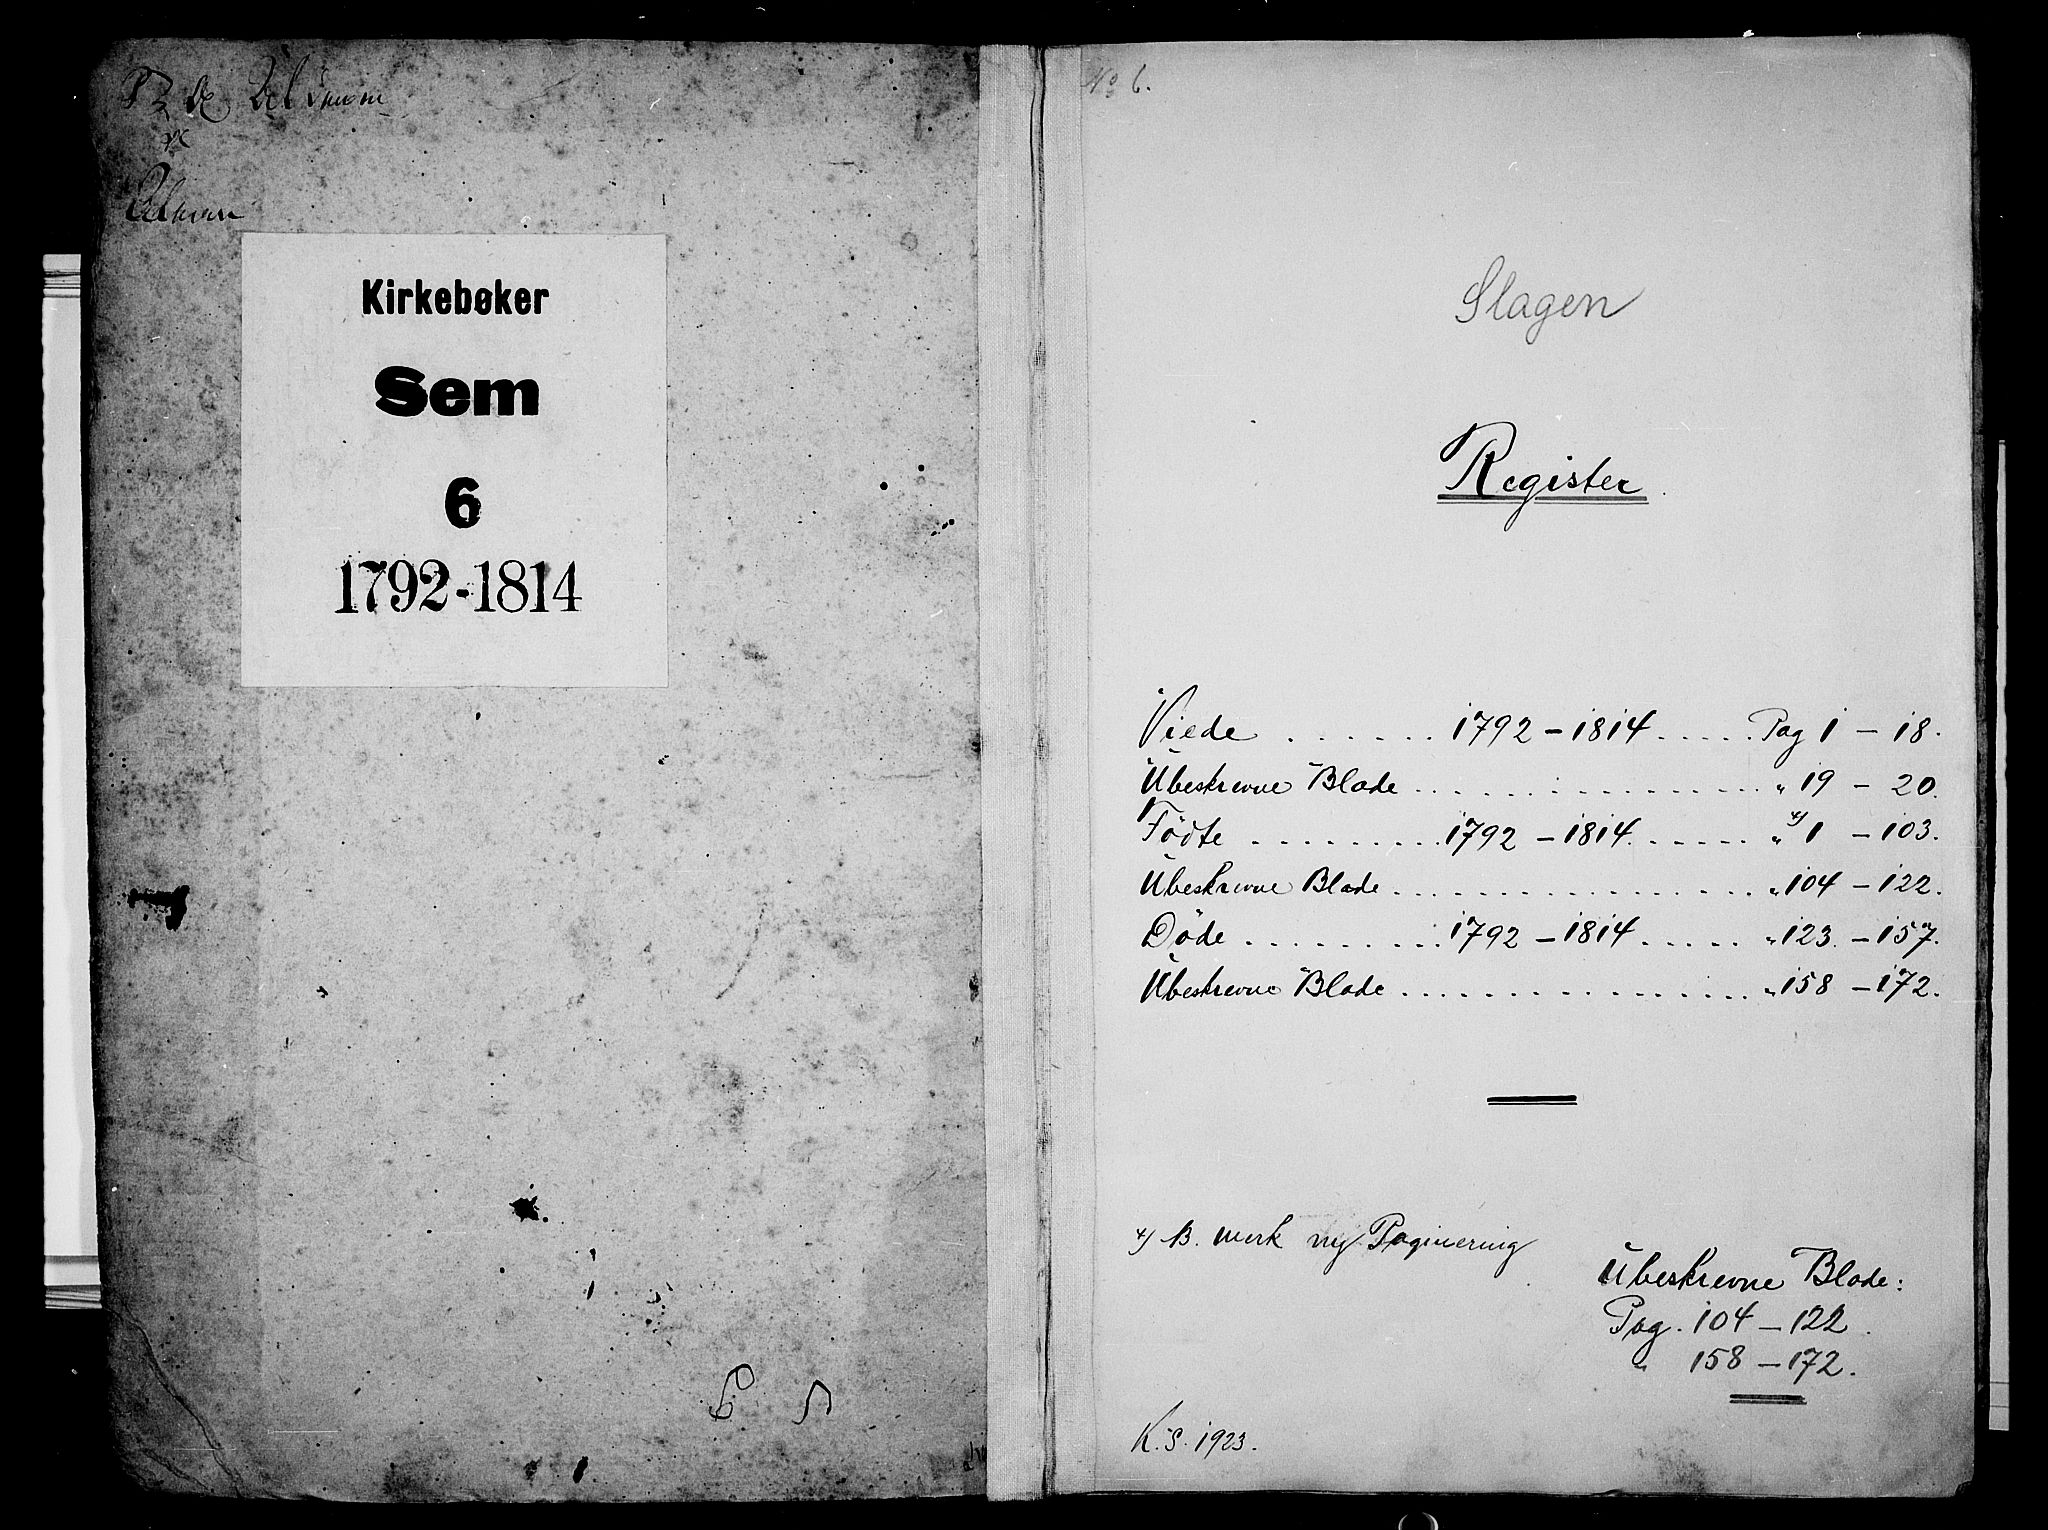 Kirkebøker
Sem
6
1792-1814
6
No 6.
Slagen
Register
Viede ....... 1792 – 1814 ..... Pag 1 – 18.
Ubeskrevne Blade ................ " 19 – 20.
Födte ......... 1792 – 1814 ...... " x) 1 – 103.
Ubeskrevne Blade ................ " 104 – 122.
Döde ......... 1792 – 1814 ..... " 123 – 157.
Ubeskrevne Blade ................ " 158 – 172.
x) B. merk ny Paginering
Ubeskrevne Blade:
Pag. 104 – 122.
" 158 – 172.
K.S. 1923.